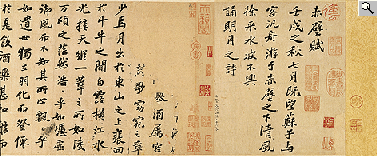 赤壁賦
壬戌之秋七月既望蘇子與
客泛舟游于赤壁之下清風
徐來水波不興
誦明月之詩
舉酒屬客
歌窈窕之章
少焉月出於東山之上裴回
於斗牛之間白露橫江水
光接天縱一葦之所如陵
萬頃之茫然浩浩乎如馮虛
御風而不知其所止飄飄乎
如遺世獨立羽化而登僊
於是飲酒樂甚扣舷而